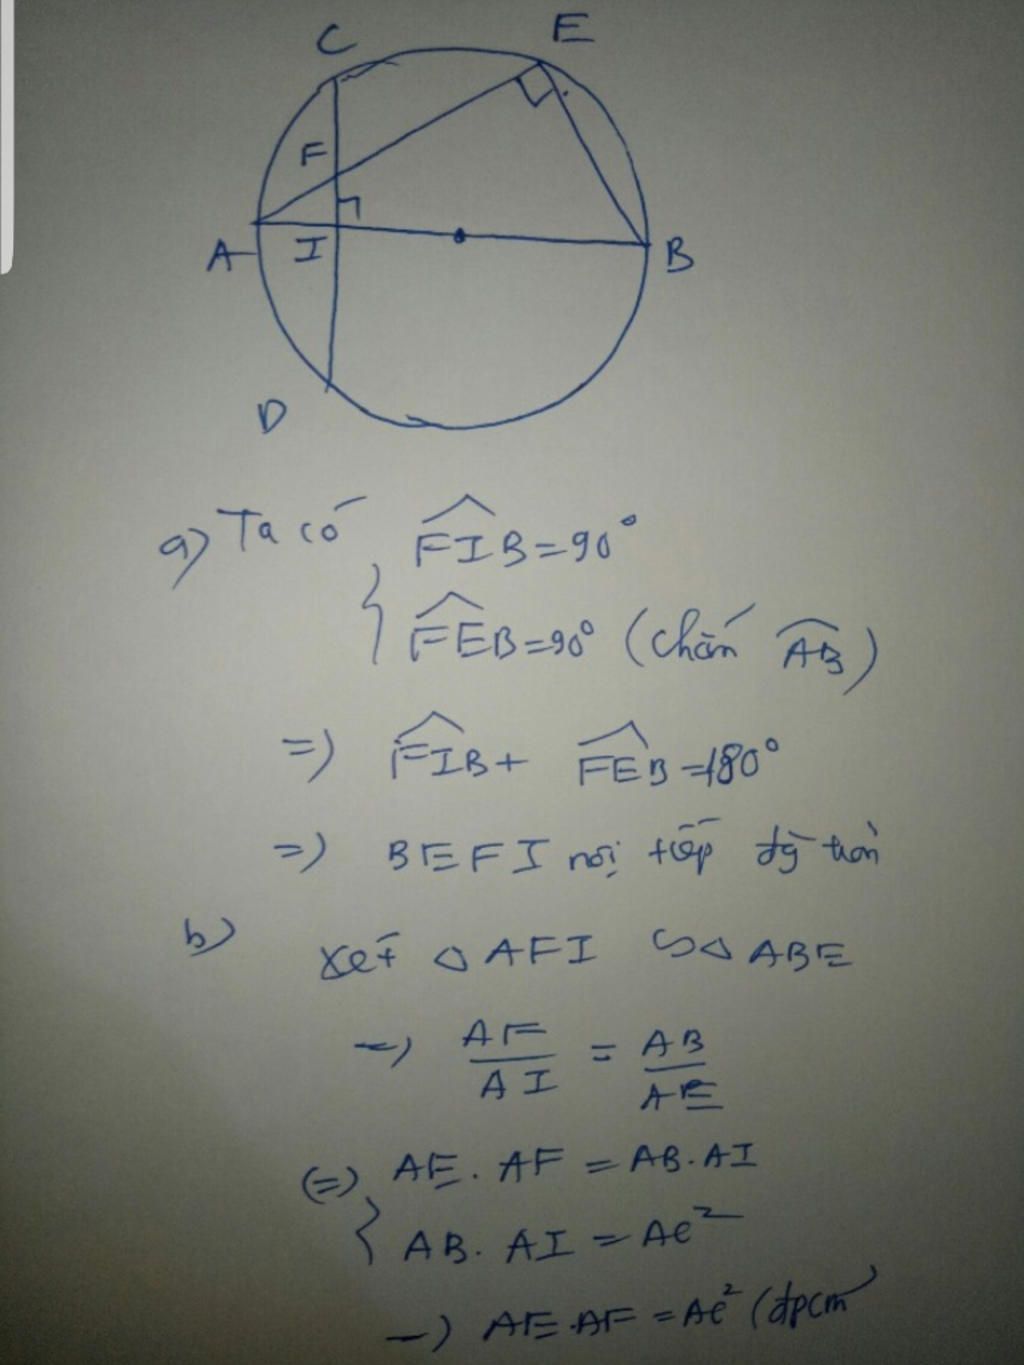 C
E
F
A
I
B
D
a) Ta có FIB = 90°
FEB = 90° (chắn AB)
=) FIB + FEB = 180°
=) BEFI nội tiếp đg tròn
b) xét △AFI ∽ △ABE
=) AF/AI = AB/AE
(=) AE.AF = AB.AI
{ AB.AI = AC²
=) AE.AF = AC² (đpcm